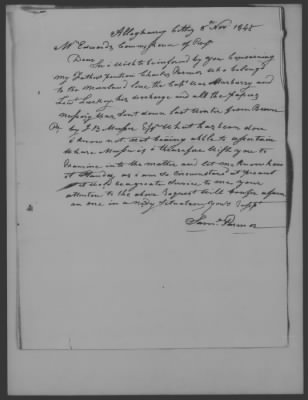 Allegheny City 8th Nov 1845
Mr Edwards Commissioner of
Dear Sir I wish to be informed by you concerning
my Fathers pention Charles Parmor who belong
to the Maryland line the Capt was
and
Lieut his discharge and all the papers
was sent down last winter from
Pa. by J. B. Esqr What has been done
I know not not being able to ascertain
I therefore wish you to
Examine into the matter and let me know how
it Stands as I am so Circumstanced at present
it would be a great Service to me your
attention to the above Request will Confer a favor
on one in a needy Situation yours
Saml Parmor